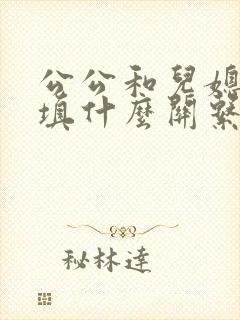 公公和兒媳
填什麼關繫
秘林達